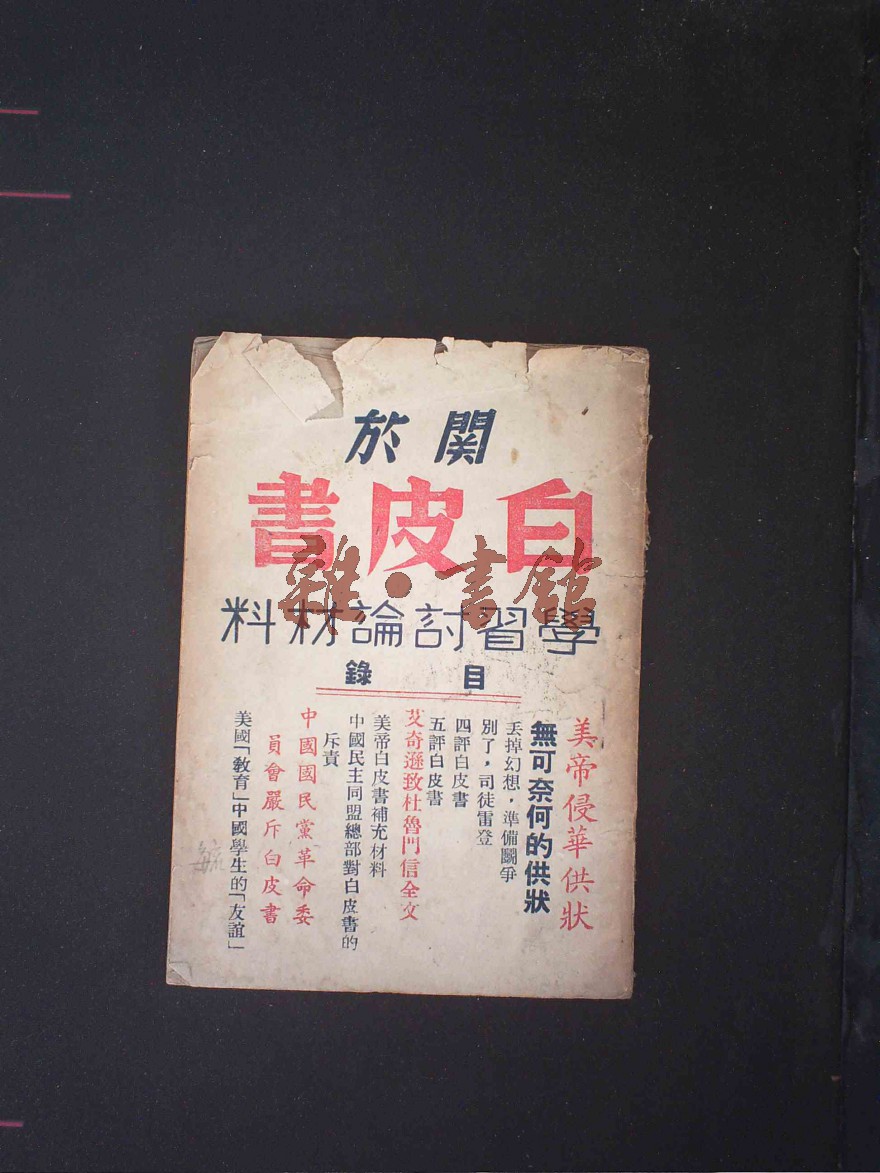 關於
白皮書
學習討論材料
雜·書館
目錄
美帝侵華供狀
無可奈何的供狀
丢掉幻想·準備鬭爭
別了，司徒雷登
四評白皮書
五評白皮書
艾奇遜致杜魯門信全文
美帝白皮書補充材料
中國民主同盟總部對白皮書的
斥責
中國國民黨革命委
員會嚴斥白皮書
美國「教育」中國學生的「友誼」